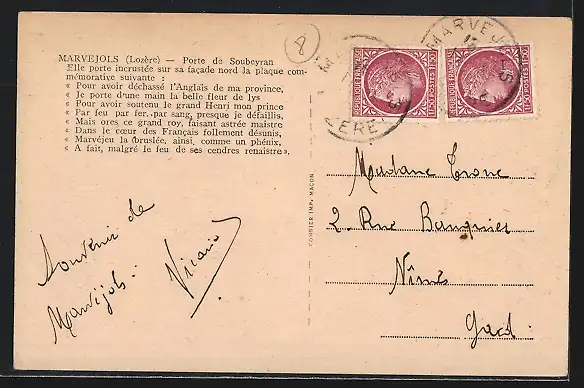 8
MARVEJOLS (Lozère) — Porte de Soubeyran
Elle porte incrustée sur sa façade nord la plaque com-
mémorative suivante :
« Pour avoir déchassé l'Anglais de ma province,
« Je porte d'une main la belle fleur de lys
« Pour avoir soutenu le grand Henri mon prince
« Par feu par fer, par sang, presque je défaillis,
« Mais ores ce grand roy, faisant astrée maistre
« Dans le cœur des Français follement désunis,
« Marvéjeu la bruslée, ainsi, comme un phénix,
« A fait, malgré le feu de ses cendres renaistre ».
MARVEJOLS
LOZERE
REPUBLIQUE FRANÇAISE
1F50 POSTES 1F50
COMBIER IMP. MACON
Madame
2. Rue
Nîmes
Gard
Souvenir de
Marvejols.